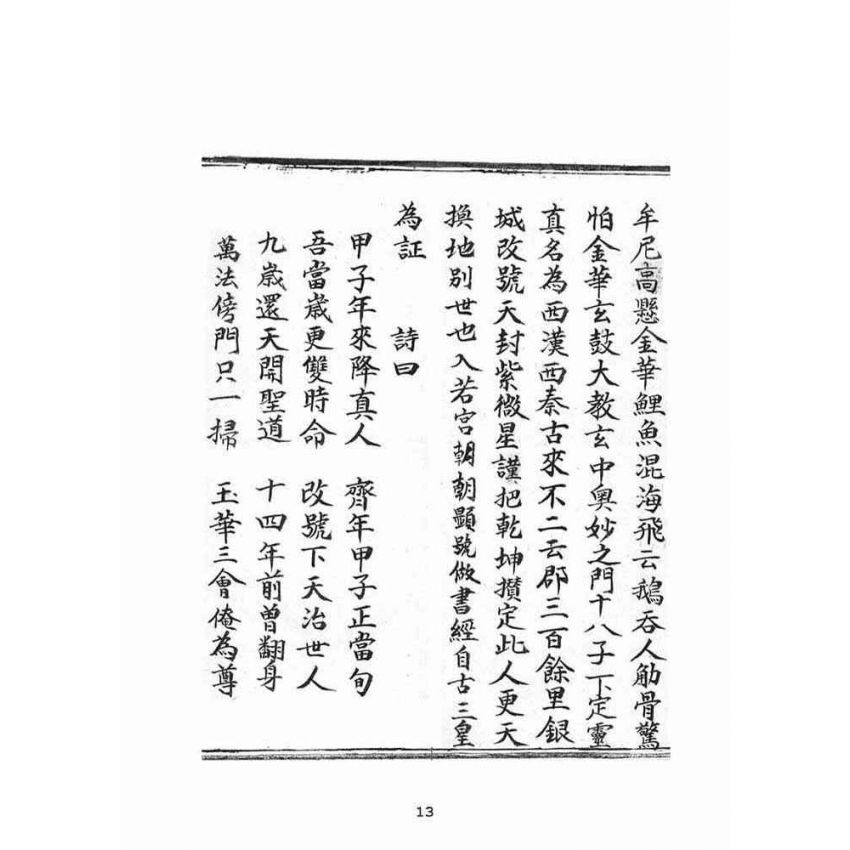 牟尼高懸金華鯉魚混海飛云鵝吞人觔骨驚
怕金華玄鼓大教玄中奧妙之門十八子下定靈
真名為西漢西秦古來不二云郡三百餘里銀
城改號天封紫微星謹把乾坤攢定此人更天
換地別世也入若宮朝朝顯號做書經自古三皇
為証　詩曰
甲子年來降真人　齊年甲子正當旬
吾當歲更雙時命　改號下天治世人
九歲還天開聖道　十四年前曾翻身
萬法傍門只一掃　玉華三會俺為尊
13